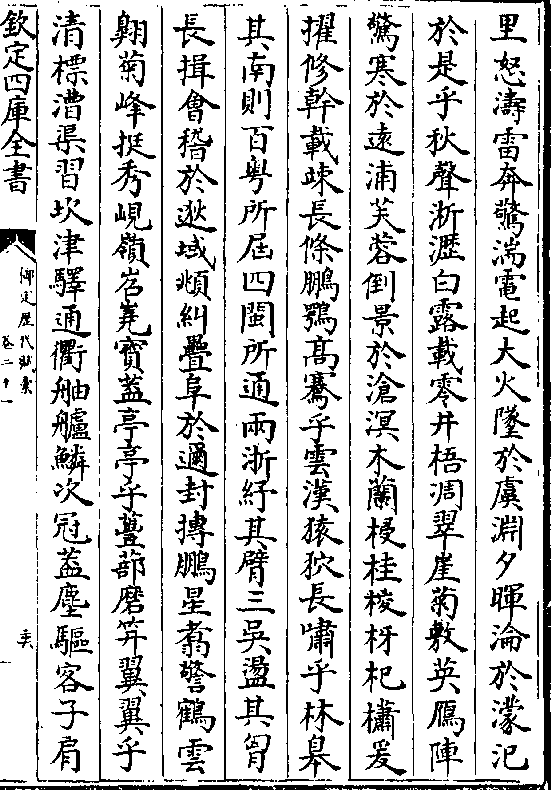 里怒濤雷奔驚湍電起大火墜於虞淵夕暉淪於濛汜
於是乎秋聲淅瀝白露載零井梧凋翠崖菊敷英鴈陣
驚寒於遠浦芙蓉倒景於滄溟木蘭梫桂棱枒杞櫹爰
擢修幹載竦長條鵬鶚髙騫乎雲漢猿狖長嘯乎林皋
其南則百粤所屆四閩所通兩浙紓其臂三吳盪其胷
長揖會稽於逖域頫糾疊阜於邇封摶鵬星翥警鶴雲
翺菊峰挺秀峴嶺岧嶤寶蓋亭亭乎薹蔀磨筓翼翼乎
清標漕渠習坎津驛通衢舳艫鱗次冠蓋塵驅客子肩
欽定四庫全書
御定歴代賦彚
卷二十一